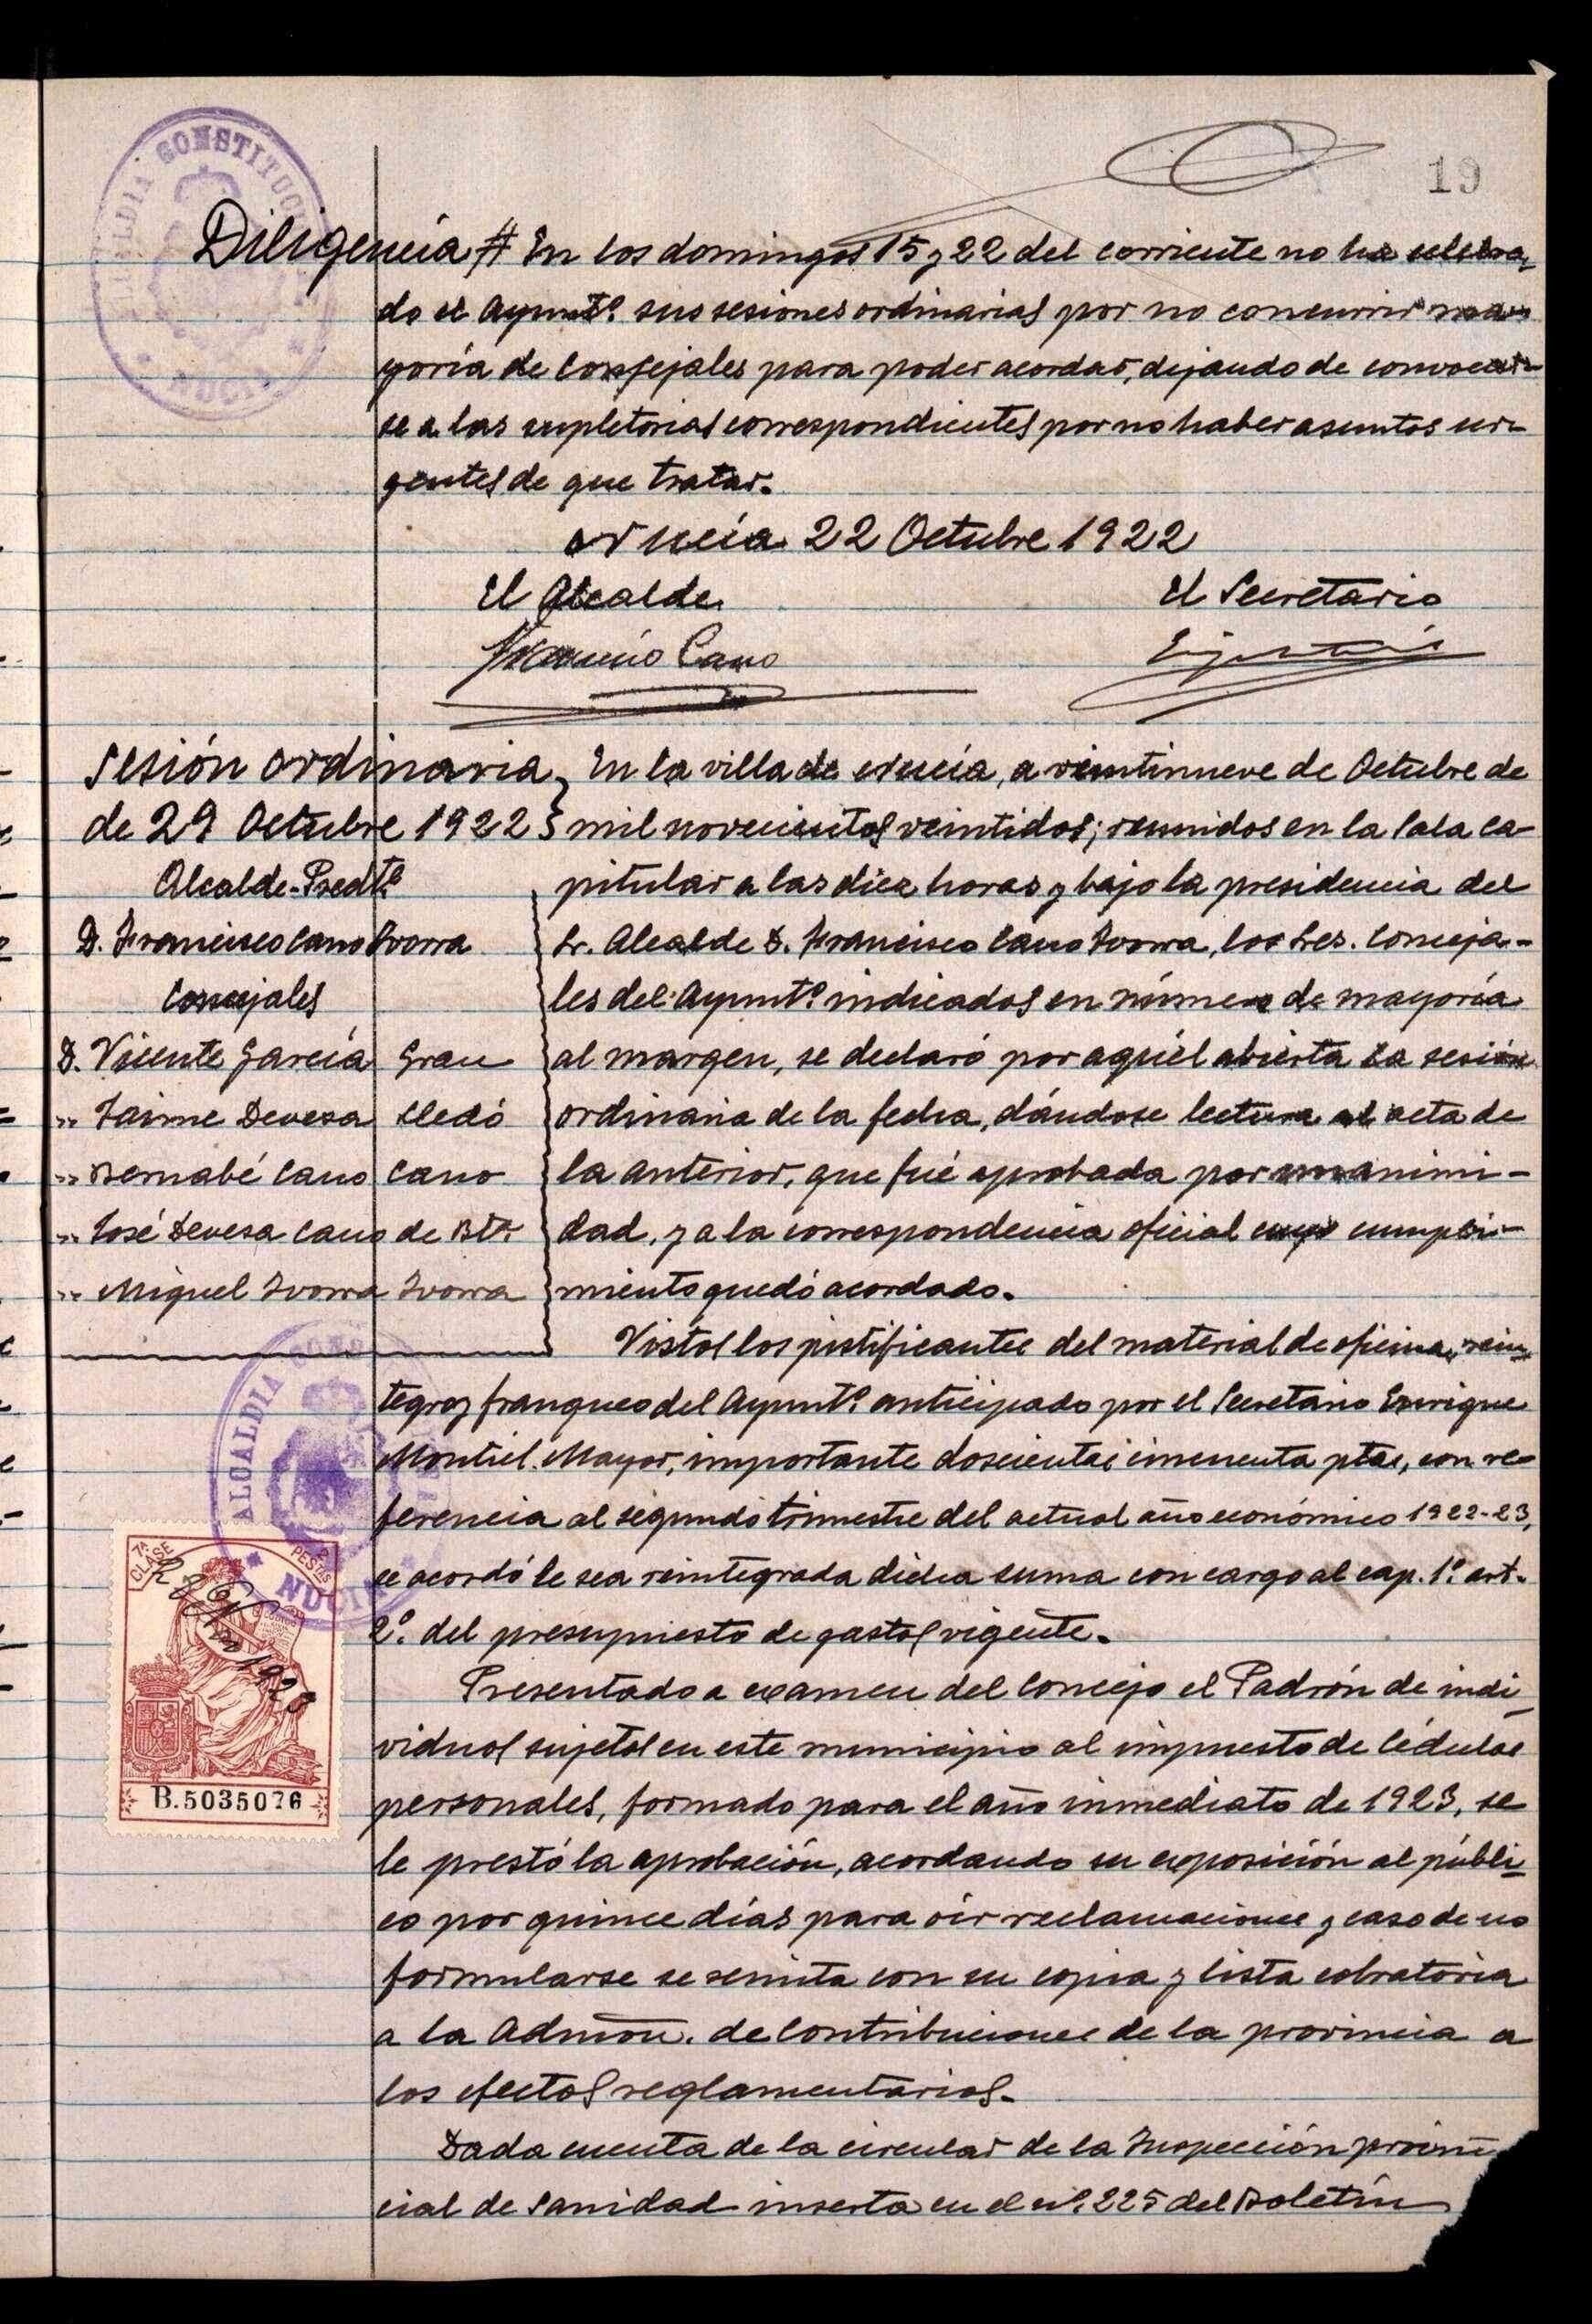 19
ALCALDIA CONSTITUCI
NUCIA
Diligencia # En los domingos 15 y 22 del corriente no ha celebra-
do el Ayuntº. sus sesiones ordinarias por no concurrir ma-
yoría de Concejales para poder acordar, dejando de convocar-
se a las supletorias correspondientes por no haber asuntos ur-
gentes de que tratar.
Nucía 22 Octubre 1922
El Alcalde
El Secretario
Francisco Cano
Sesión ordinaria
de 29 Octubre 1922
Alcalde-Presdtº
D. Francisco Cano Ivorra
Concejales
D. Vicente García Grau
" Jaime Devesa Lledó
" Bernabé Cano Cano
" José Devesa Cano de Btª.
" Miguel Ivorra Ivorra
En la villa de Nucía, a veintinueve de Octubre de
mil novecientos veintidos; reunidos en la Sala ca-
pitular a las diez horas y bajo la presidencia del
Sr. Alcalde D. Francisco Cano Ivorra, los Sres. Conceja-
les del Ayuntº indicados en número de mayoría
al margen, se declaró por aquél abierta la sesión
ordinaria de la fecha, dándose lectura al acta de
la anterior, que fué aprobada por unanimi-
dad, y a la correspondencia oficial cuyo cumpli-
miento quedó acordado.
Vistos los justificantes del material de oficina, rein-
tegro y franqueo del Ayuntº. anticipado por el Secretario Enrique
Montiel Mayor, importante doscientas cincuenta ptas, con re-
ferencia al segundo trimestre del actual año económico 1922-23,
se acordó le sea reintegrada dicha suma con cargo al cap. 1º. art.
2º. del presupuesto de gastos vigente.
Presentado a examen del Concejo el Padrón de indi-
viduos sujetos en este municipio al impuesto de Cédulas
personales, formado para el año inmediato de 1923, se
le prestó la aprobación, acordando su exposición al públi-
co por quince días para oír reclamaciones y caso de no
formularse se remita con su copia y lista cobratoria
a la Admón. de Contribuciones de la provincia a
los efectos reglamentarios.
Dada cuenta de la circular de la Inspección provin-
cial de Sanidad inserta en el nº. 225 del Boletín
ALCALDIA CONS
NUCIA
7ª CLASE
2 PESETAS
1923
B.5035076